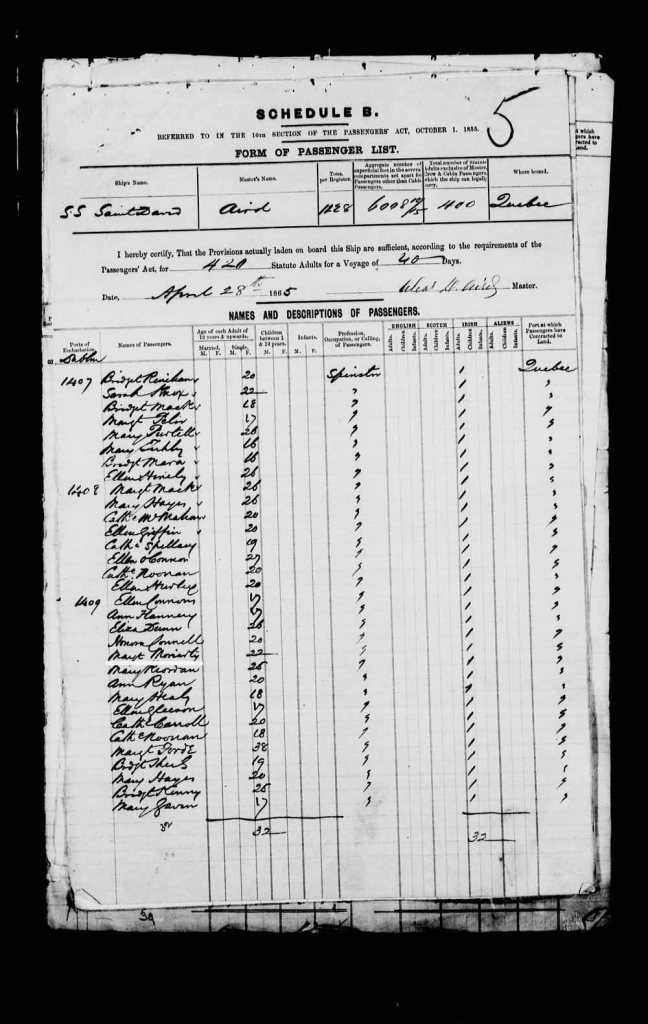 5
SCHEDULE B.
REFERRED TO IN THE 16TH SECTION OF THE PASSENGERS' ACT, OCTOBER 1, 1855.
FORM OF PASSENGER LIST.
Ship's Name. Master's Name. Tons per Register. Aggregate number of superficial feet in the several compartments set apart for Passengers other than Cabin Passengers. Total number of Statute Adults exclusive of Master, Crew & Cabin Passengers, which the ship can legally carry. Where bound.
SS Saint David Aird 1228 6008 400 Quebec
I hereby certify, That the Provisions actually laden on board this Ship are sufficient, according to the requirements of the
Passengers' Act, for 420 Statute Adults for a Voyage of 40 Days.
Date, April 28th 1865 Master.
NAMES AND DESCRIPTIONS OF PASSENGERS.
Ports of Embarkation. Names of Passengers. Age of each Adult of 12 years & upwards. Married. M. F. Single. M. F. Children between 1 & 12 years. M. F. Infants. M. F. Profession, Occupation, or Calling of Passengers. ENGLISH Adults. Children Infants. SCOTCH Adults. Children Infants. IRISH Adults. Children Infants. ALIENS Adults. Children Infants. Port at which Passengers have Contracted to Land.
Quebec
1407 Bridget 20 Spinster
Sarah 22 "
Bridget Mack 18 "
Margt 17 "
Mary 26 "
Mary 16 "
Bridgt Mara 16 "
Ellen 26 "
1408 Margt Mack 26 "
Mary Hayes 26 "
Cathe McMahon 20 "
Ellen Griffin 20 "
Cathe Spellacy 19 "
Ellen O'Connor 27 "
Cathe Noonan 20 "
Ellen Hurley 20 "
1409 Ellen Connors 17 "
Ann Flannery 17 "
Eliza Dunn 26 "
Honora Connell 20 "
Margt Moriarty 22 "
Mary Reordan 25 "
Ann Ryan 20 "
Mary Healy 18 "
Ellen Gleeson 17 "
Cathe Carroll 20 "
Cathe Noonan 18 "
Margt 38 "
Bridgt 19 "
Mary Hayes 20 "
Bridgt Kenny 25 "
Mary Gavin 17 "
32 32